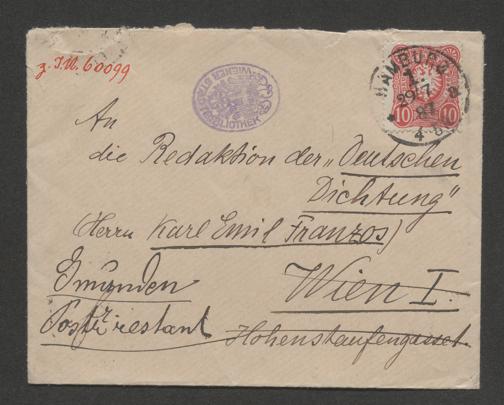 z. J.N. 60099
WIENER STADTBIBLIOTHEK
HAMBURG
1.
29 7
8
4-5
10 10
An
die Redaktion der „Deutschen
Dichtung“
Herrn Karl Emil Franzos
Gmunden
Wien I.
Post restant
Hohenstaufengasse